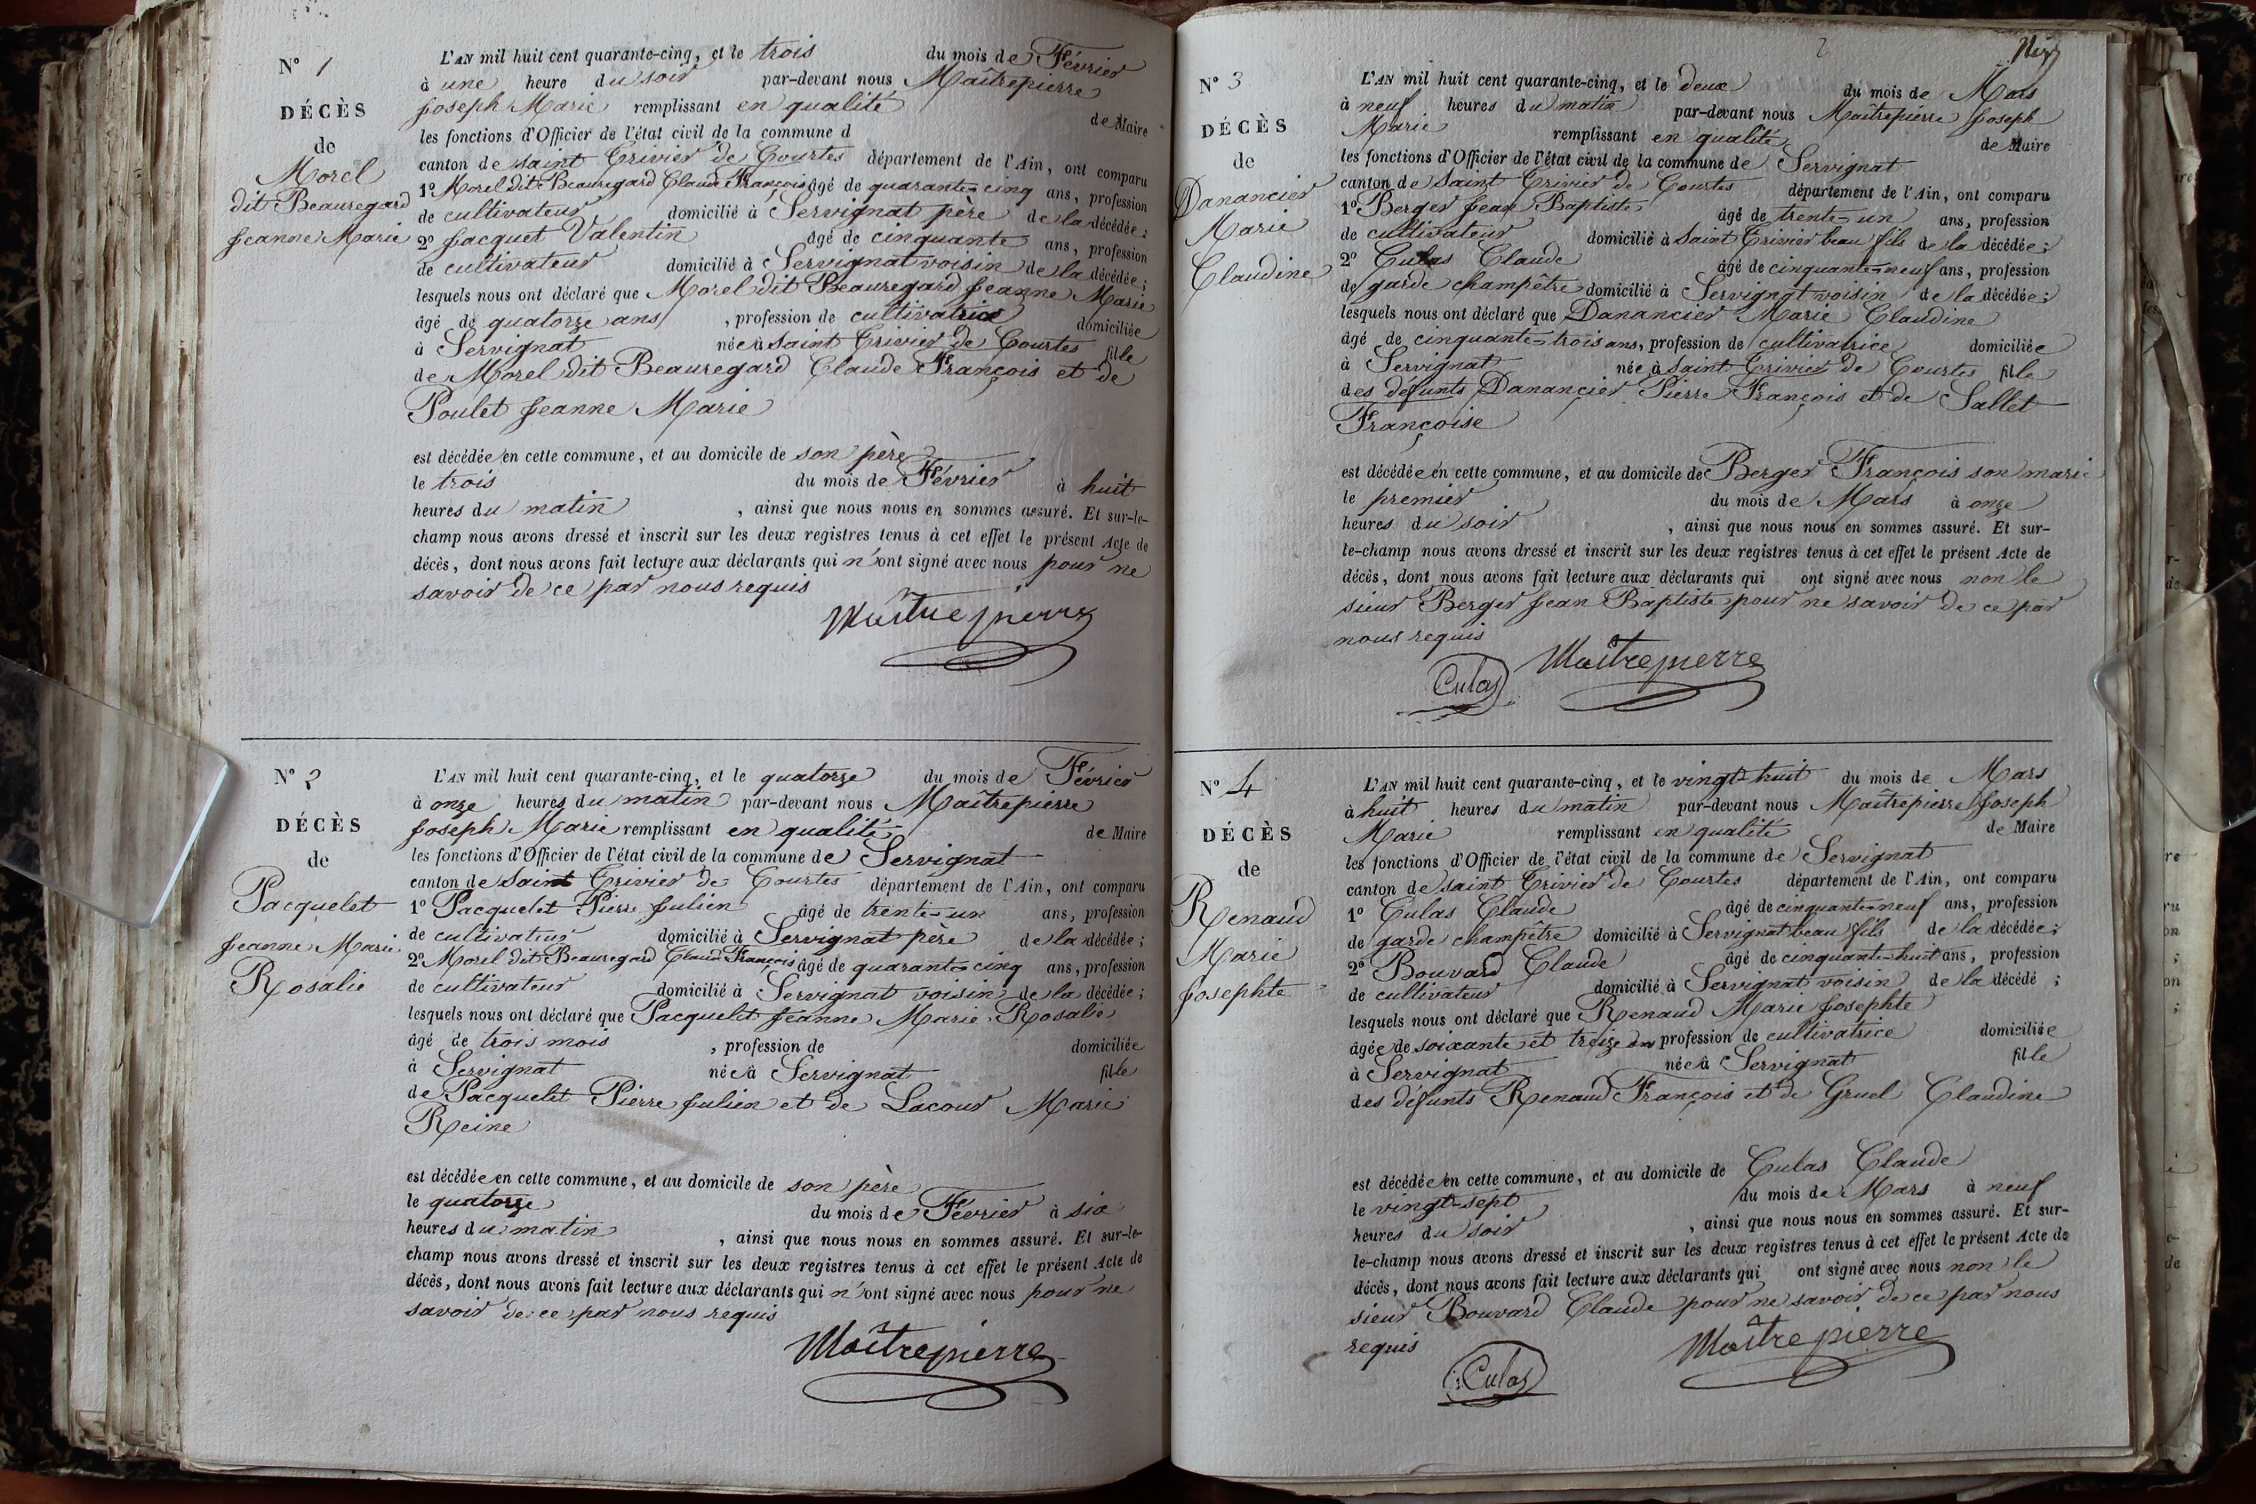 N° 1
DÉCÈS
de
Morel
dit Beauregard
Jeanne Marie
L'AN mil huit cent quarante-cinq, et le trois du mois de Février
à une heure du soir par-devant nous Maîtrepierre
Joseph Marie remplissant en qualité de Maire
les fonctions d'Officier de l'état civil de la commune d
canton de Saint Trivier de Courtes département de l'Ain, ont comparu
1° Morel dit Beauregard Claude François âgé de quarante-cinq ans, profession
de cultivateur domicilié à Servignat père de la décédée;
2° Jacquet Valentin âgé de cinquante ans, profession
de cultivateur domicilié à Servignat voisin de la décédée;
lesquels nous ont déclaré que Morel dit Beauregard Jeanne Marie
âgé de quatorze ans, profession de cultivatrice domiciliée
à Servignat née à Saint Trivier de Courtes fille
de Morel dit Beauregard Claude François et de
Poulet Jeanne Marie
est décédée en cette commune, et au domicile de son père
le trois du mois de Février à huit
heures du matin, ainsi que nous nous en sommes assuré. Et sur-le-
champ nous avons dressé et inscrit sur les deux registres tenus à cet effet le présent Acte de
décès, dont nous avons fait lecture aux déclarants qui n'ont signé avec nous pour ne
savoir de ce par nous requis
Maîtrepierre
N° 2
DÉCÈS
de
Pacquelet
Jeanne Marie
Rosalie
L'AN mil huit cent quarante-cinq, et le quatorze du mois de Février
à onze heures du matin par-devant nous Maîtrepierre
Joseph Marie remplissant en qualité de Maire
les fonctions d'Officier de l'état civil de la commune de Servignat
canton de Saint Trivier de Courtes département de l'Ain, ont comparu
1° Pacquelet Pierre Julien âgé de trente-un ans, profession
de cultivateur domicilié à Servignat père de la décédée;
2° Morel dit Beauregard Claude François âgé de quarante cinq ans, profession
de cultivateur domicilié à Servignat voisin de la décédée;
lesquels nous ont déclaré que Pacquelet Jeanne Marie Rosalie
âgé de trois mois, profession de domiciliée
à Servignat née à Servignat fille
de Pacquelet Pierre Julien et de Lacour Marie
Reine
est décédée en cette commune, et au domicile de son père
le quatorze du mois de Février à six
heures du matin, ainsi que nous nous en sommes assuré. Et sur-le-
champ nous avons dressé et inscrit sur les deux registres tenus à cet effet le présent Acte de
décès, dont nous avons fait lecture aux déclarants qui n'ont signé avec nous pour ne
savoir de ce par nous requis
Maîtrepierre
2
N° 3
DÉCÈS
de
Danancier
Marie
Claudine
L'AN mil huit cent quarante-cinq, et le deux du mois de Mars
à neuf heures du matin par-devant nous Maîtrepierre Joseph
Marie remplissant en qualité de Maire
les fonctions d'Officier de l'état civil de la commune de Servignat
canton de Saint Trivier de Courtes département de l'Ain, ont comparu
1° Berger Jean Baptiste âgé de trente-un ans, profession
de cultivateur domicilié à Saint Trivier beau fils de la décédée;
2° Culas Claude âgé de cinquante-neuf ans, profession
de garde champêtre domicilié à Servignat voisin de la décédée;
lesquels nous ont déclaré que Danancier Marie Claudine
âgé de cinquante-trois ans, profession de cultivatrice domiciliée
à Servignat née à Saint Trivier de Courtes fille
des défunts Danancier Pierre François et de Sallet
Françoise
est décédée en cette commune, et au domicile de Berger François son mari
le premier du mois de Mars à onze
heures du soir, ainsi que nous nous en sommes assuré. Et sur-
le-champ nous avons dressé et inscrit sur les deux registres tenus à cet effet le présent Acte de
décès, dont nous avons fait lecture aux déclarants qui ont signé avec nous non le
sieur Berger Jean Baptiste pour ne savoir de ce par
nous requis
Culas Maîtrepierre
N° 4
DÉCÈS
de
Renaud
Marie
Josephte
L'AN mil huit cent quarante-cinq, et le vingt-huit du mois de Mars
à huit heures du matin par-devant nous Maîtrepierre Joseph
Marie remplissant en qualité de Maire
les fonctions d'Officier de l'état civil de la commune de Servignat
canton de Saint Trivier de Courtes département de l'Ain, ont comparu
1° Culas Claude âgé de cinquante-neuf ans, profession
de garde champêtre domicilié à Servignat beau fils de la décédée;
2° Bouvard Claude âgé de cinquante-huit ans, profession
de cultivateur domicilié à Servignat voisin de la décédé ;
lesquels nous ont déclaré que Renaud Marie Josephte
âgée de soixante et treize ans profession de cultivatrice domiciliée
à Servignat née à Servignat fille
des défunts Renaud François et de Gruel Claudine
est décédée en cette commune, et au domicile de Culas Claude
le vingt-sept du mois de Mars à neuf
heures du soir, ainsi que nous nous en sommes assuré. Et sur-
le-champ nous avons dressé et inscrit sur les deux registres tenus à cet effet le présent Acte de
décès, dont nous avons fait lecture aux déclarants qui ont signé avec nous non le
sieur Bouvard Claude pour ne savoir de ce par nous
requis
Culas Maîtrepierre